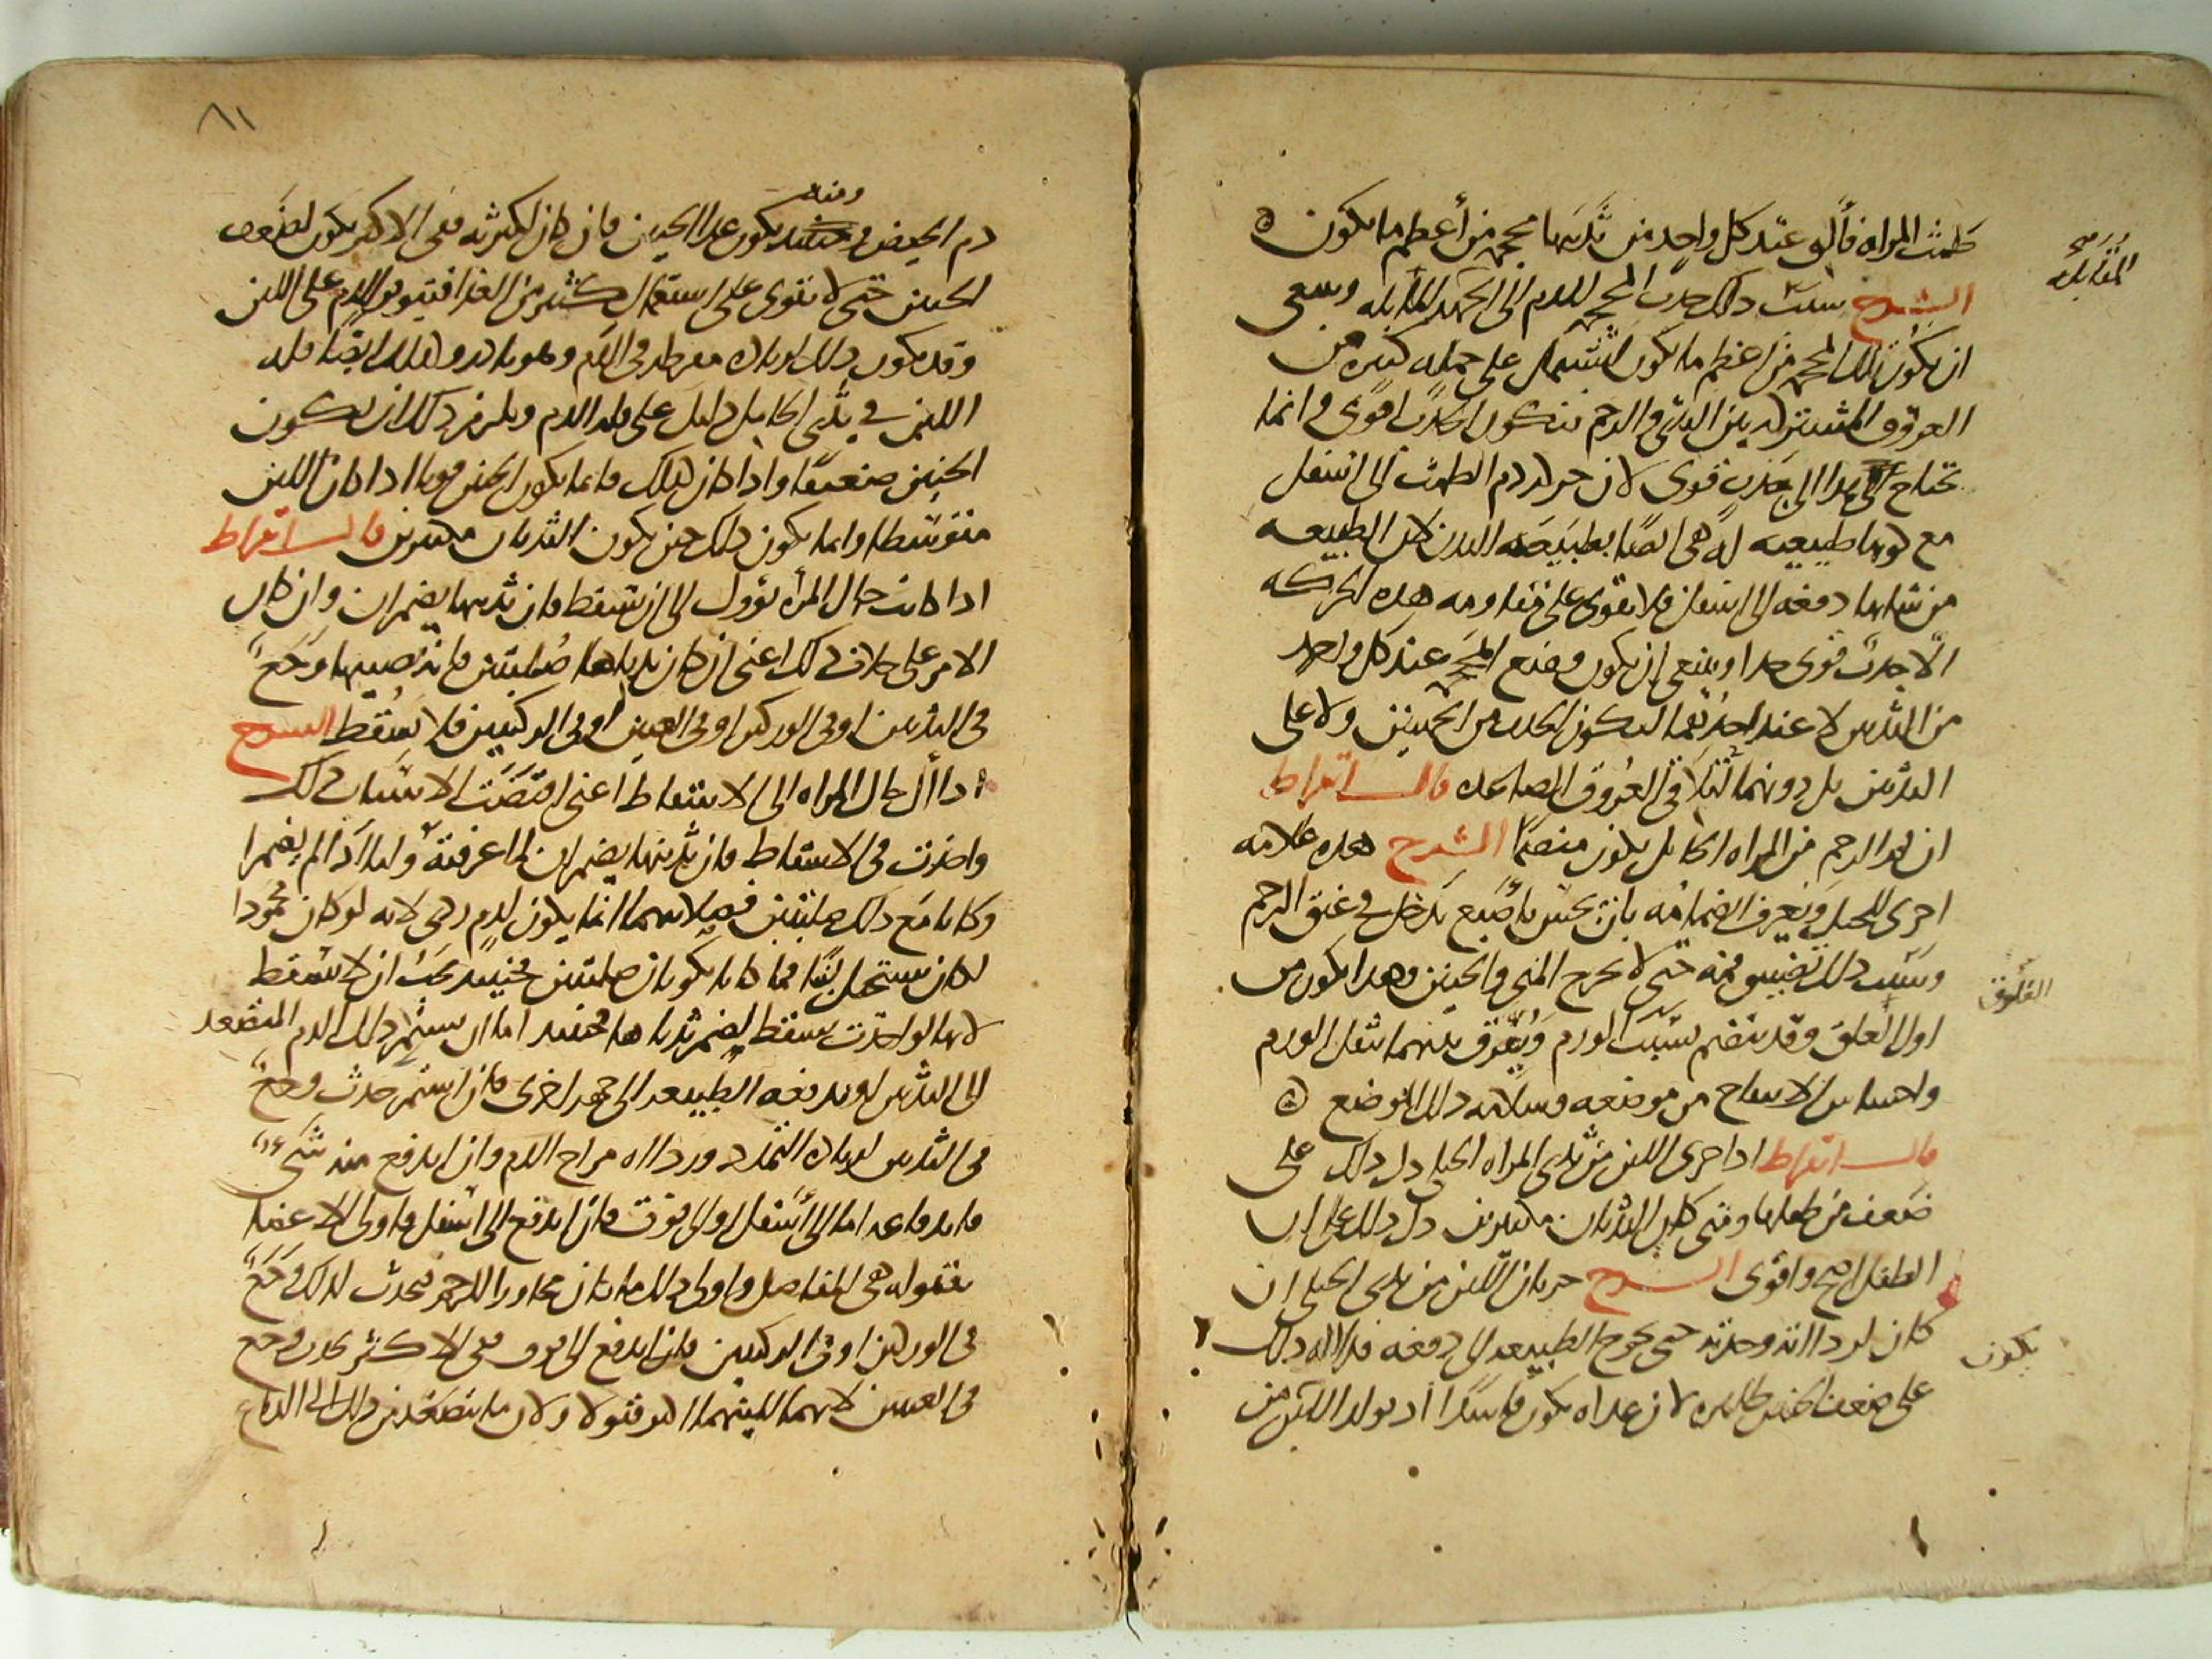 طمث المراه فألق عند كل واحد من ثدييها محجمه من أعظم ما يكون
الشرح سبب ذلك جذب المحجمه للدم الى الجهه المقابله وينبغى
المقابله
ان يكون تلك المحجمه من اعظم ما يكون لتشتمل على جمله كبيره من
العروق المشتركه بين الثدى والرحم فيكون الجذب اقوى وانما
يحتاج فى هذا الى جذب قوى لان حركه دم الطمث الى اسفل
مع كونها طبيعيه له هى ايضا بطبيعه البدن لان الطبيعه
من شانها دفعه الى اسفل فلا يقوى على مقاومه هذه الحركه
الا جذب قوى جدا وينبغى ان يكون وضع المحجمه عند كل واحد
من الثديين لا عند احدهما ليكون الجذب من الجهتين ولا على
الثديين بل دونهما لتلاقى العروق الصاعده قال ابقراط
ان فم الرحم من المراه الحامل يكون منضما الشرح هذه علامه
اخرى للحبل ويعرف انضمامه بان يحس باصبع يدخل فى عنق الرحم
وسبب ذلك تضييق فمه حتى لا يخرج المنى والجنين وهذا يكون من
العلوق
اول العلق وقد ينضم بسبب الورم ويفرق بينهما بثقل الورم
واحساس الانتفاخ من موضعه وسلامه ذلك الموضع
قال ابقراط اذا جرى اللبن من ثدى المراه الحبلى دل ذلك على
ضعف من طفلها ومتى كان الثديان مكتنزين دل ذلك على ان
الطفل اصح واقوى الشرح جريان اللبن من ثدى الحبلى ان
كان لرداته وحدته حتى يحوج الطبيعه الى دفعه فدلاله ذلك
يكون
على ضعف الجنين ظاهره لان غذاه يكون فاسدا اذ تولد اللبن من
٨١
دم الحيض ومنه يكون غذا الجنين فان كان لكثرته ففى الاكثر يكون لضعف
الجنين حتى لا يقوى على استعمال كثير من الغذا فيتوفر الدم على اللبن
وقد يكون ذلك لزياده مفرطه فى الدم وهو نادر وكذلك ايضا قله
اللبن فى ثدى الحامل دليل على قله الدم ويلزم ذلك ان يكون
الجنين ضعيفا واذا كان كذلك فانما يكون الجنين قويا اذا كان اللبن
متوسطا وانما يكون ذلك حين يكون الثديان مكتنزين قال ابقراط
اذا كانت حال المرأه تؤول الى ان تسقط فان ثدييها يضمران وان كان
الامر على خلاف ذلك اعنى ان كان ثدياها صلبتين فانه يصيبها وجع
فى الثديين او فى الوركين او فى العينين او فى الركبتين فلا تسقط الشرح
اذا أل حال المراه الى الاسقاط اعنى اقتضت الاسباب ذلك
واخذت فى الاسقاط فان ثدييها يضمران لما عرفته واما اذا لم يضمرا
وكانا مع ذلك صلبتين فصلابتهما انما يكون لدم ردى لانه لو كان محمودا
لكان يستحيل لبنا فما كانا يكونان صلبتين فحينئذ يجب ان لا تسقط
لانها لو اخذت تسقط لضمر ثدياها فحينئذ اما ان يستمر ذلك الدم المتصعد
الى الثديين او تدفعه الطبيعه الى جهه اخرى فان استمر حدث وجع
فى الثديين لزياده التمدد ورداه مزاج الدم وان اندفع منه شئ
فاندفاعه اما الى أسفل او الى فوق فان اندفع الى اسفل فاولى الاعضا
بقبوله هى المفاصل واولى ذلك ما كان مجاورا للرحم فيحدث لذلك وجع
فى الوركين او فى الركبتين فان اندفع الى فوق ففى الاكثر يحدث وجع
فى العينين لانهما للينهما اكثر قبولا ولان ما يتصعد من ذلك الى الدماغ